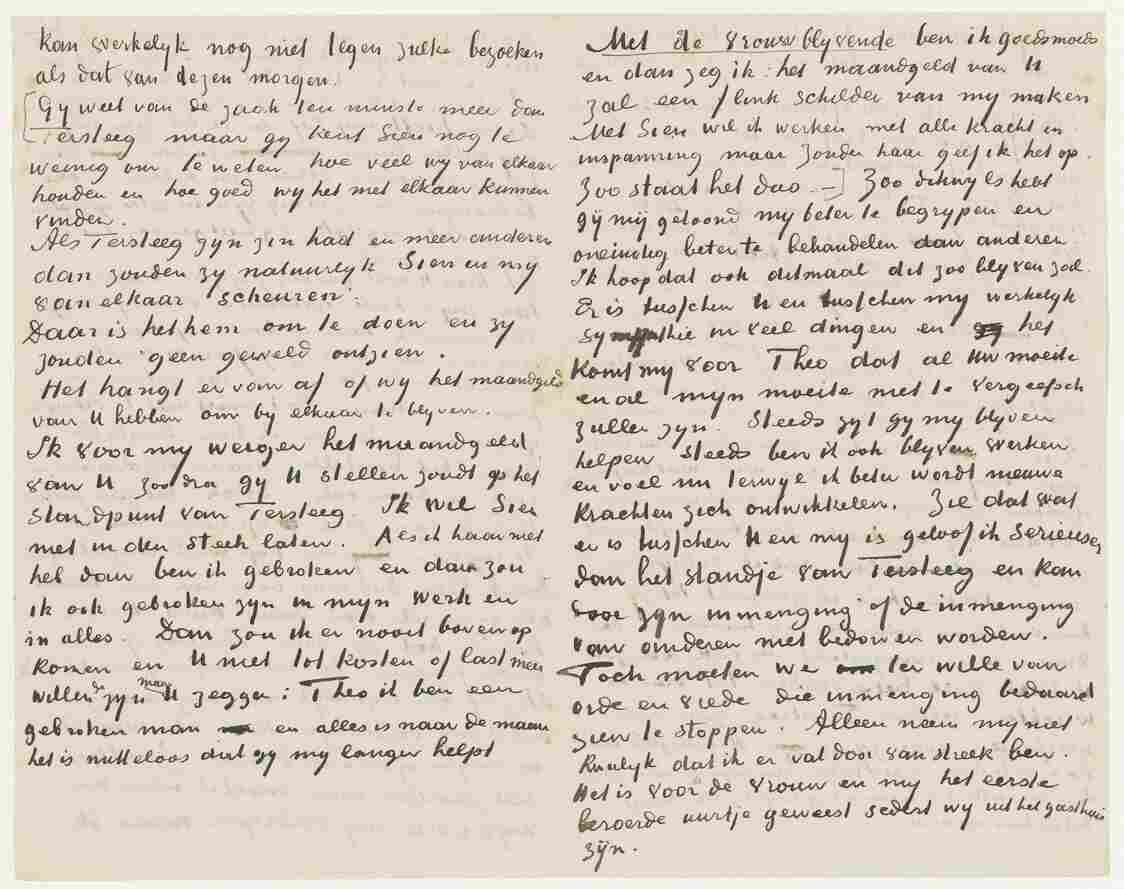 kan werkelyk nog niet tegen zulke bezoeken
als dat van dezen morgen.
[Gy weet van de zaak ten minste meer dan
Tersteeg maar gy kent Sien nog te
weinig om te weten hoe veel wy van elkaar
houden en hoe goed wy het met elkaar kunnen
vinden.
Als Tersteeg zyn zin had en meer anderen
dan zouden zy natuurlyk Sien en my
van elkaar scheuren.
Daar is het hem om te doen en zy
zouden geen geweld ontzien.
Het hangt er van af of wy het maandgeld
van U hebben om by elkaar te blyven.
Ik voor my weiger het maandgeld
van U zoodra gy U stellen zoudt op het
standpunt van Tersteeg. Ik wil Sien
niet in den steek laten. Als ik haar niet
heb dan ben ik gebroken en dan zou
ik ook gebroken zyn in myn werk en
in alles. Dan zou ik er nooit bovenop
komen en U niet tot kosten of last meer
willende zyn maar U zeggen: Theo ik ben een
gebroken man en alles is naar de maan
het is nutteloos dat gy my langer helpt
Met de vrouw blyvende ben ik goedsmoeds
en dan zeg ik: het maandgeld van U
zal een flink schilder van my maken
Met Sien wil ik werken met alle kracht en
inspanning maar zonder haar geef ik het op.
Zoo staat het dus.–] Zoo dikwyls hebt
gij mij getoond my beter te begrypen en
oneindig beter te behandelen dan anderen
Ik hoop dat ook ditmaal dit zoo blyven zal.
Er is tusschen U en tusschen my werkelyk
sympathie in veel dingen en het
komt my voor Theo dat al uw moeite
en al myn moeite niet te vergeefsch
zullen zyn. Steeds zyt gy my blyven
helpen steeds ben ik ook blyven werken
en voel nu terwyl ik beter wordt nieuwe
krachten zich ontwikkelen. Zie dat wat
er is tusschen U en my is geloof ik serieuser
dan het standje van Tersteeg en kan
door zyn inmenging of de inmenging
van anderen niet bedorven worden.
Toch moeten we ter wille van
orde en vrede die inmenging bedaard
zien te stoppen. Alleen neem my niet
kwalyk dat ik er wat door van streek ben.
Het is voor de vrouw en my het eerste
beroerde uurtje geweest sedert wy uit het gasthuis
zijn.